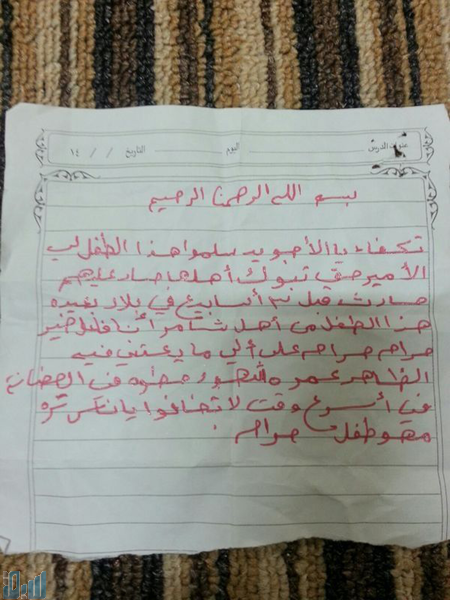 عنوان الدرس اليوم التاريخ / / ١٤
بسم الله الرحمنا الرحيم
تكفاء يا الأجويد سلموا هذا الطفل لب
الأمير حق تبوك أهلها صار عليهم
حادث قبل ٣ أسابيع في بلاد بعيده
هذا الطفل من أهل شامرأنا فليل خير
حرام حرام على ألي ما يعتني فيه
الظاهر عمره شهور حطوه في الحضانة
في أسرع وقت لا تخافوا يا ناس تره
مهو طفل حرام